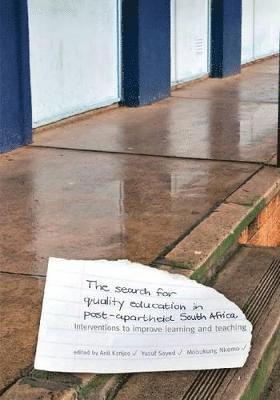 The search for
quality education in
post-apartheid South Africa
Interventions to improve learning and teaching
edited by Anil Kanjee ✓ Yusuf Sayed ✓ Mokubung Nkomo ✓